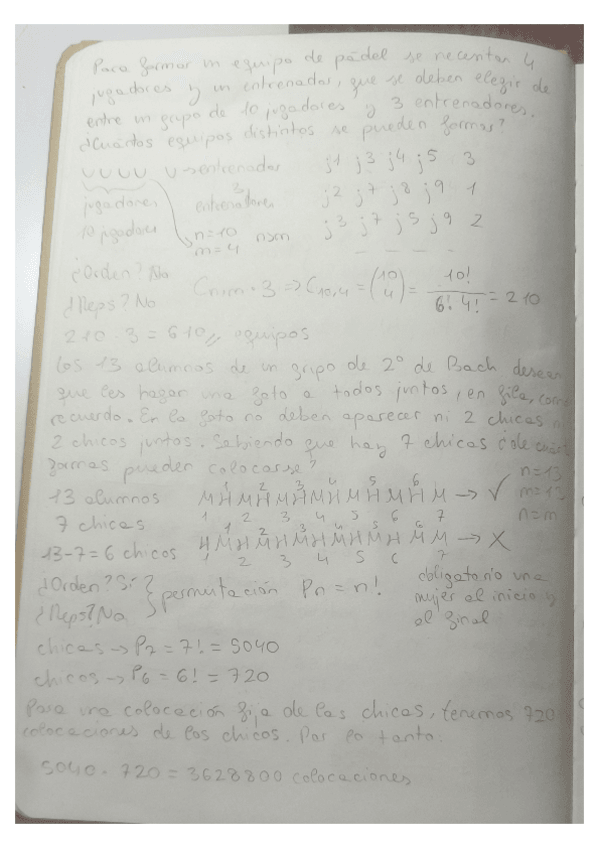 Para formar un equipo de pádel se necesitan 4
jugadores y un entrenador, que se deben elegir de
entre un grupo de 10 jugadores y 3 entrenadores.
¿Cuántos equipos distintos se pueden formar?
U U U U U → entrenador j1 j3 j4 j5 3
jugadores 3 entrenadores j2 j7 j8 j9 1
10 jugadores n=10 m=4 n>m j3 j7 j5 j9 2
- - - -
¿Orden? No
¿Reps? No Cn,m · 3 => C10,4 = (10 4) = 10! / 6! 4! = 210
210 · 3 = 610 equipos
Los 13 alumnos de un grupo de 2º de Bach desean
que les hagan una foto a todos juntos, en fila, como
recuerdo. En la foto no deben aparecer ni 2 chicas ni
2 chicos juntos. Sabiendo que hay 7 chicas ¿de
formas pueden colocarse?
n=13
m=13
n=m
13 alumnos 1 2 3 4 5 6
M H M H M H M H M H M H M → ✓
7 chicas 1 2 3 4 5 6 7
1 2 3 4 5 6
13-7=6 chicos H M H M H M H M H M H M M → X
1 2 3 4 5 6 7
¿Orden? Sí
¿Reps? No } permutación Pn = n!
obligatorio una
mujer al inicio y
al final
chicas → P7 = 7! = 5040
chicos → P6 = 6! = 720
Para una colocación fija de las chicas, tenemos 720
colocaciones de los chicos. Por lo tanto:
5040 · 720 = 3628800 colocaciones